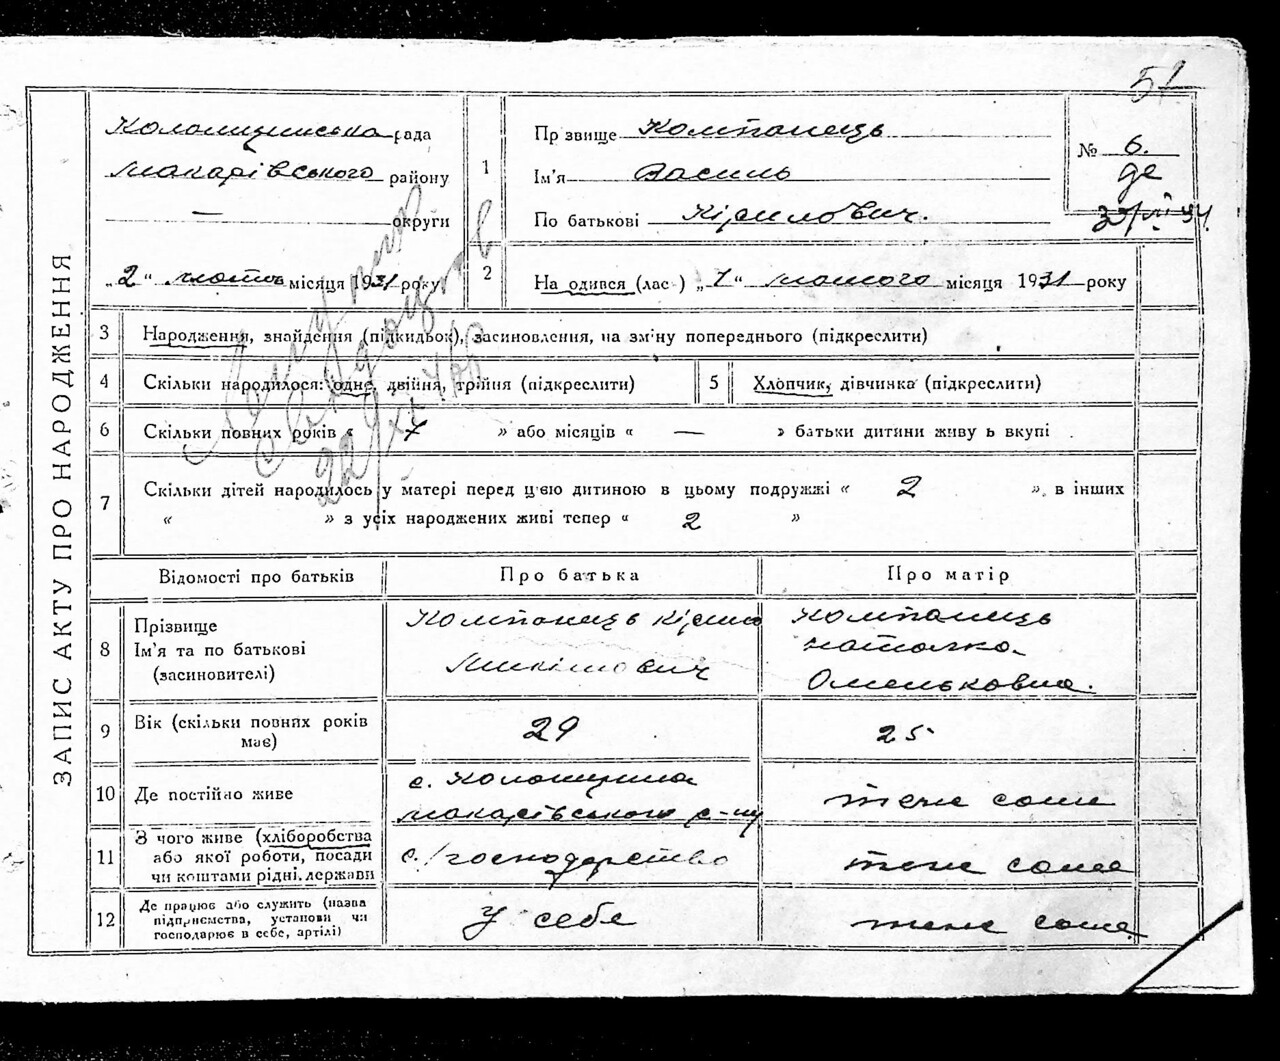 51
ЗАПИС АКТУ ПРО НАРОДЖЕННЯ
Коломицинська рада
Макарівського району
— округи
„2" лютого місяця 1931 року
1
Пр звище Компанець
Ім'я Василь
По батькові Кірилович.
№ 6.
де
2
На одився (лас ) „1" лютого місяця 1931 року
3 Народження, знайдення (підкидьок), засиновлення, на зм'ну попереднього (підкреслити)
4 Скільки народилося: одне, двійня, трійня (підкреслити)
5 Хлопчик, дівчинка (підкреслити)
6 Скільки повних років « 7 » або місяців « — » батьки дитини живу ь вкупі
7 Скільки дітей народилось у матері перед ц'єю дитиною в цьому подружжі « 2 », в інших
« » з усіх народжених живі тепер « 2 »
Відомості про батьків Про батька Про матір
8 Прізвище
Ім'я та по батькові
(засиновителі)
Компанець Кірило
Микитович
Компанець
Наталка
Омельковна.
9 Вік (скільки повних років
має)
29
25
10 Де постійно живе
с. Колонщина
Макарівського р-ну
теж саме
11 З чого живе (хліборобства
або якої роботи, посади
чи коштами рідні, держави
с/господарство
теж саме
12 Де працює або служить (назва
підприємства, установи чи
господарює в себе, артілі)
У себе
теж саме
22/XI